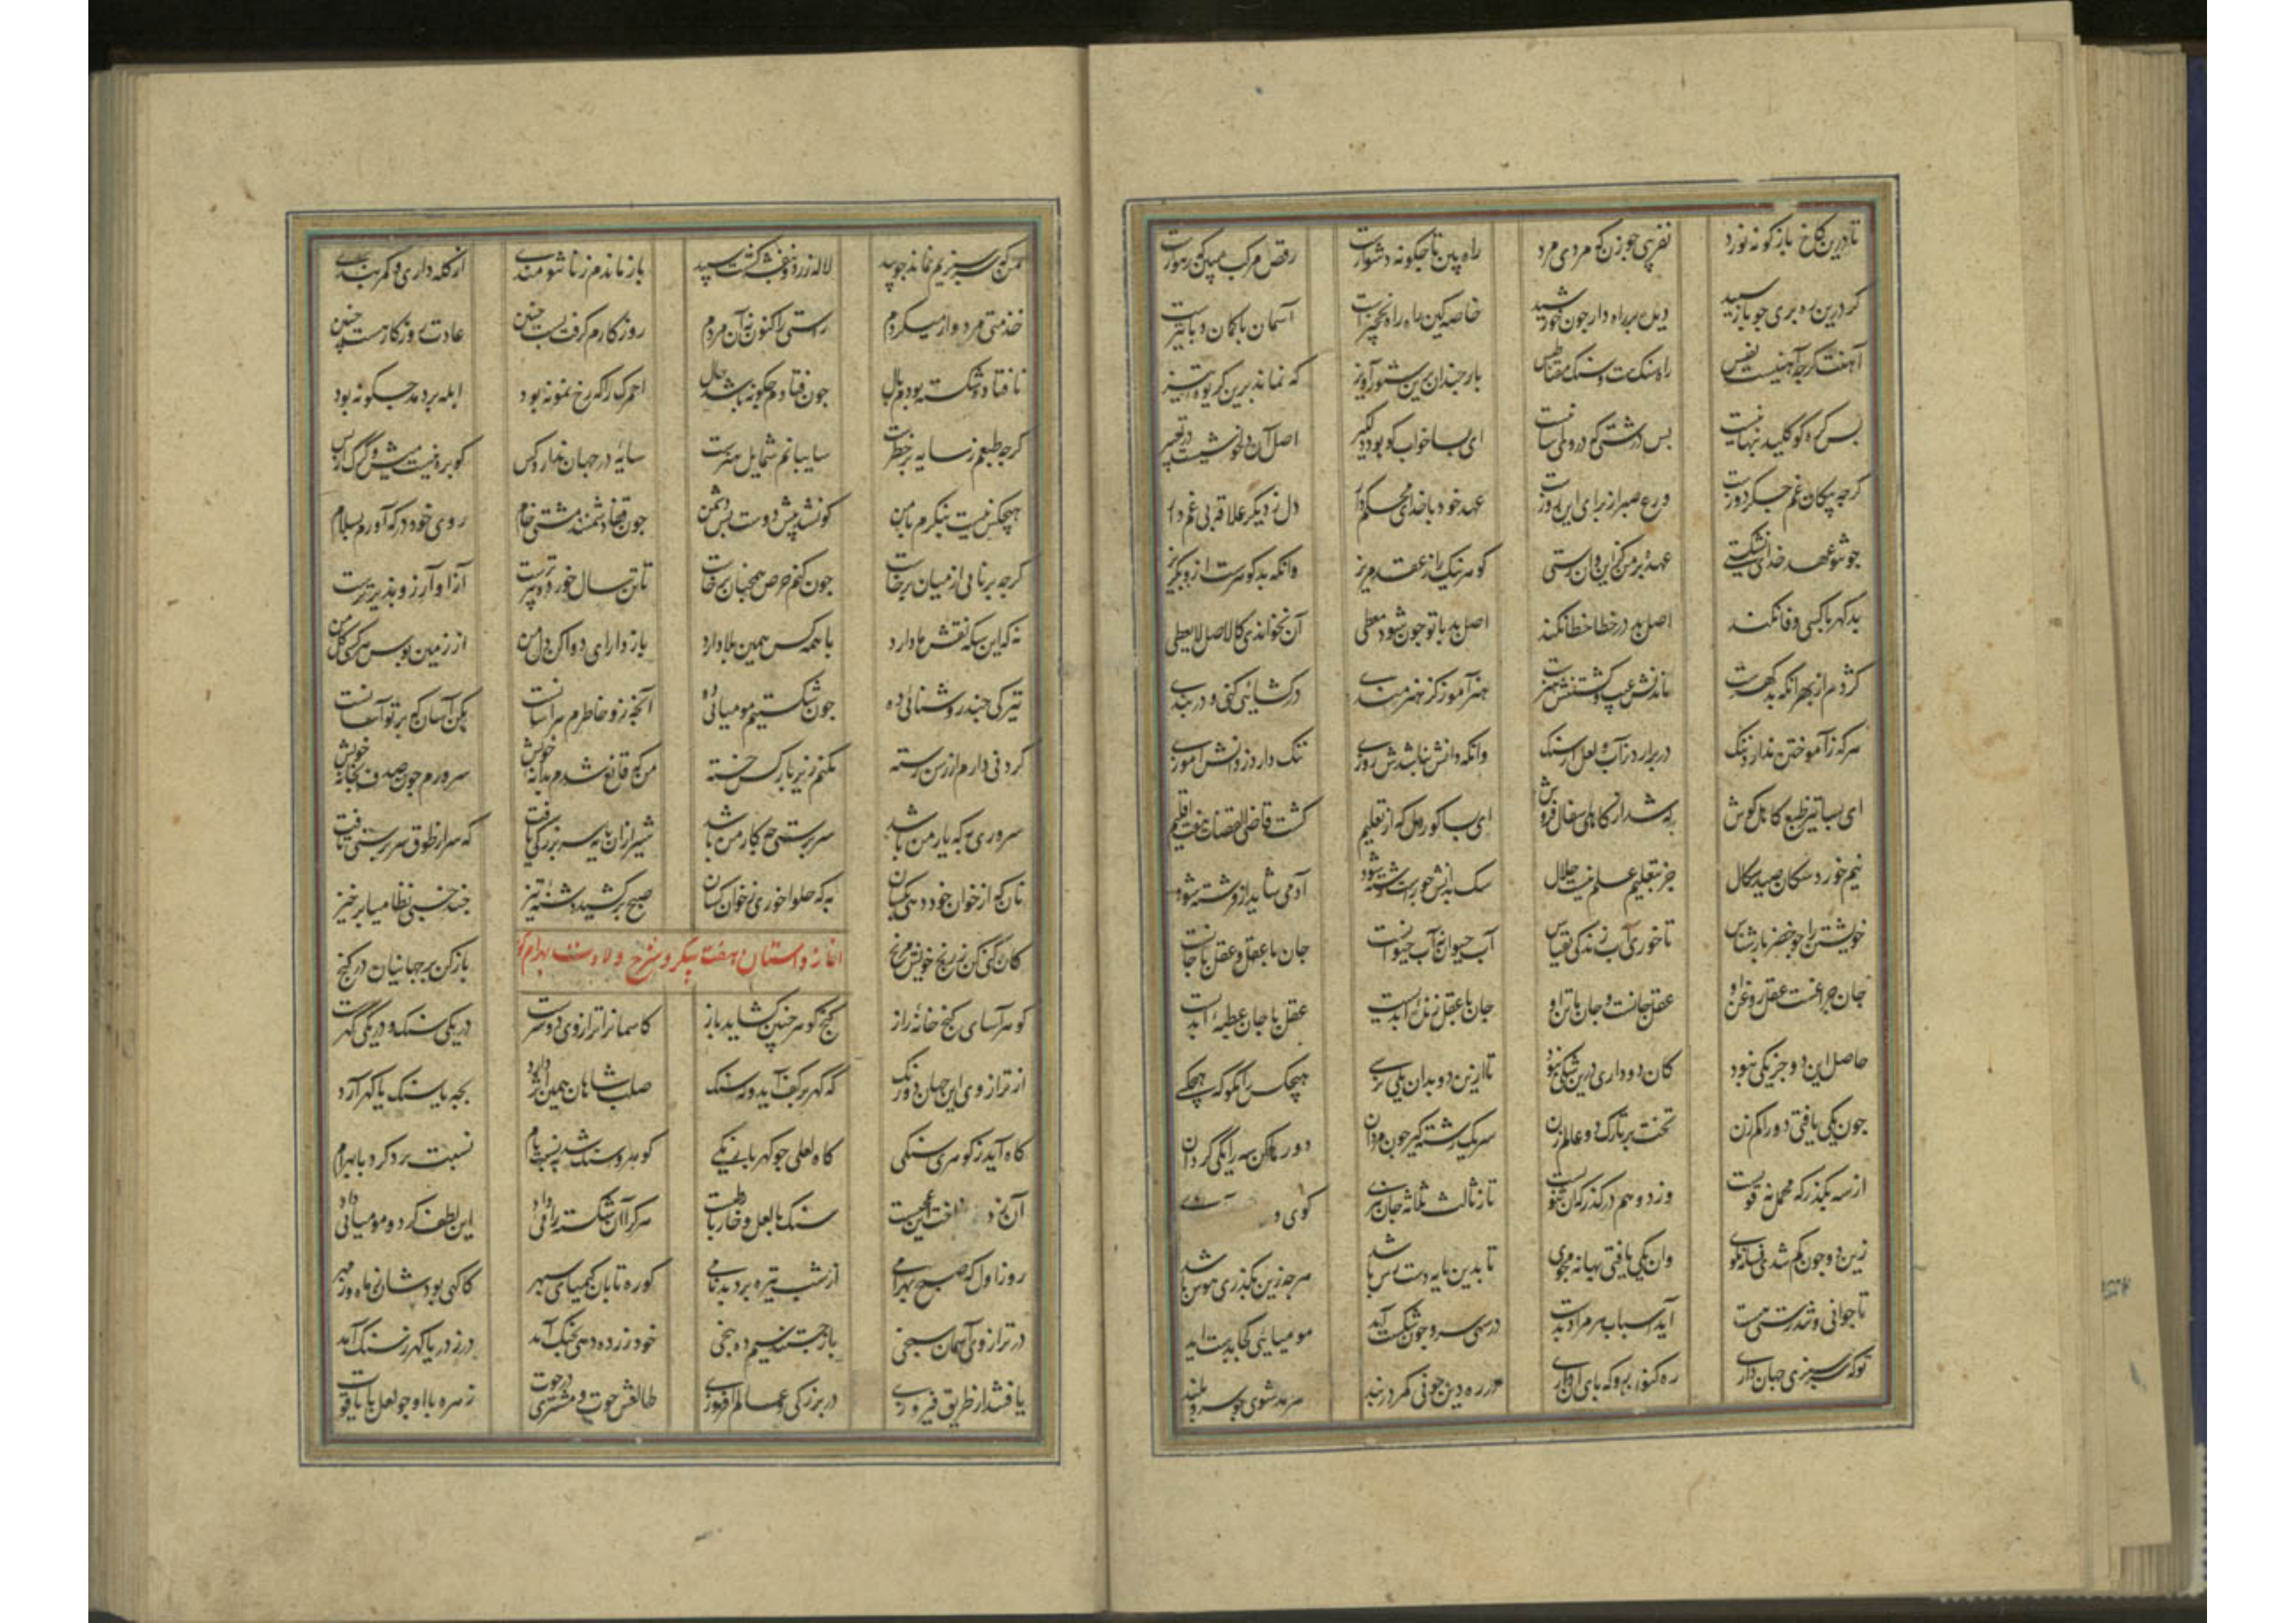 تا درین کاخ بازکونه نورد نفریبی جو زن کو مردی مرد راه بین تا جکونه دشوارست رقص مرکب مبین که رهوارست
کر درین ره بری جو باز سپید دیده بر راه دار جون خورشید خاصه کین راه راه نخجیرست آسمان با کمان و با تیرست
آهنت کرجه آهنیست نفیس راه سنکست و سنک مغناطیس بار جندان برین ستور آویز که نماند برین کریوه تیز
بس کره کو کلید پنهانیست بس درشتی که در وی آسانیست ای بسا خواب کو بود دلکیر اصل آن دلخوشیست در تعبیر
کرجه پیکان غم جکر دوزست درع صبر از برای این روزست عهد خود با خدای محکم دار دل ز دیکر علاقه بی غم دار
جو تو عهد خدای نشکستی عهده بر من کزین و آن رستی کوهر نیک را ز عقد مریز وانکه بد کوهرست ازو بکریز
بدکهر با کسی وفا نکند اصل بد در خطا خطا نکند اصل بد با تو جون شود معطی آن نخواندی که الاصل لا یخطی
کژدم از بهر آنکه بدکهرست ماندنش عیب و کشتنش هنرست هنر آموز کز هنرمندی درکشایی کنی و دربندی
هرکه ز آموختن ندارد ننک در برآرد ز آب و لعل از سنک وانکه دانش نباشدش روزی ننک دارد ز دانش آموزی
ای بسا تیز طبع کاهل کوش که شد از کاهلی سفال فروش ای بسا کوردل که از تعلیم کشت قاضی القضات هفت اقلیم
نیم خورد سکان صید سکال جز بتعلیم علم نیست حلال سک بدانش جو راست رشته شود آدمی شاید ار فرشته شود
خویشتن را جو خضر باز شناس تا خوری آب زندکی بقیاس آب حیوان نه آب حیوانست جان با عقل و عقل با جانست
جان جراغست و عقل روغن او عقل جانست و جان ما تن او جان با عقل زنده ابدیست عقل با جان عطیه ابدیست
حاصل این دو جز یکی نبود کان دو داری درین شکی نبود تا ازین دو بدان یکی نرسی هیجکس را مکو که هیچ کسی
جون یکی یافتی دو را کم زن تخت بر تارک دو عالم زن سر یک رشته کیر جون مردان دو رها کن سه را یکی کردان
از سه بکذر که محمل نه قویست وز دو هم درکذر که آن ثنویست تا ز ثالث ثلاثه جان نبری کوی و
زین دو جون کم شدی فسانه مکوی وان یکی یافتی بهانه مجوی تا بدین پایه دسترس باشد هرجه زین بکذری هوس باشد
تا جوانی و تندرستی هست آید اسباب هر مراد بدست در سهی سرو جون شکست آید مومیایی کجا بدست آید
توکه سرسبزی جهان داری ره کنون رو که پای آن داری در ره دین جو نی کمر دربند سرمد شوی جو سرو بلند
من که سرسبزیم نماند جو بید لاله زرد و بنفشه کشت سپید باز ماندم ز ناتنومندی از کله داری و کمربندی
خدمتی مردوار میکردم راستی را کنون نه آن مردم روزکارم کرفت بست جنین عادت روزکار هست جنین
نافتاده شکسته بودم بال جون فتادم جکونه باشد حال
کرجه طبعم ز سایه بر خطرست سایبانم شمایل هنرست سایه در جهان ندارد کس کو بره نیست میش و کرک از پس
هیجکس نیست بنکرم با من کو نشد پیش دوست پس دشمن جون قفا دشمنند مشتی خام روی خود در که آورم بسلام
کرجه برنایی از میان برخاست جون کنم حرص همجنان برخاست تا تن سال خورده پیرترست آز او آرزو پذیرترست
نه که این سکه نقش ما دارد با همه کس همین بلا دارد باز دار ای دوا کن دل من از زمین بوس هر کسی کل من
تیرکی جند روشنائی ده جون شکستیم مومیائی ده آنجه زو خاطرم هراسانست بکن آسان که بر تو آسانست
کردنی دارم از رسن رسته نکنم زیر بار کس خسته من که قانع شدم بدانه خویش سرورم جون صدف بخانه خویش
سروری به که یار من باشد سرپرستی جه کار من باشد شیر ازان پایه بزرکی یافت که سر از طوق سرپرستی تافت
نان که از خوان خود دهی بکسان به که حلوا خوری ز خوان کسان صبح برکشید دشنه تیز جند خسبی نظامیا برخیز
کان کنی کن ز رنج خویش مرنج باز کن بر جهانیان در کنج
آغاز داستان هفت پیکر و شرح ولادت بهرام کور
کوهرآمای کنج خانه راز کنج کوهر جنین کشاید باز کاسمانرا ترازوی دو سرست در یکی سنک و در یکی کهرست
از ترازوی این جهان دو رنک که کهر بر کف آید و که سنک صلب شاهان همین اثر دارد بجه یا سنک یا کهر آرد
کاه آید ز کوهری سنکی کاه لعلی جو کهربا رنکی کوهر و سنک شد بنسبت و نام نسبت یزدکرد با بهرام
آن زد این نواخت این عجبست سنک با لعل و خار با رطبست هرکرا آن شکسته رائی داد این لطف کرد و مومیائی داد
روز اول که صبح بهرامی از شب تیره برد بدنامی کوره تابان کیمیای سپهر کاکهی بودشان ز ماه و ز مهر
در ترازوی آسمان سنجی باز جستند سیم ده پنجی خود زر ده دهی بجنک آمد در ز دریا کهر ز سنک آمد
یافتند از طریق فیروزی در بزرکی و عالم افروزی طالعش حوت و مشتری در حوت زهره با او جو لعل با یاقوت